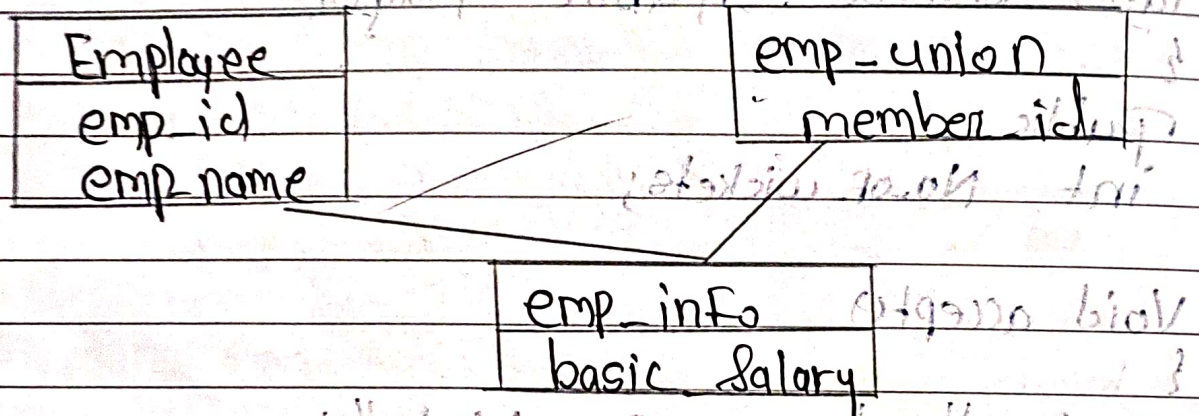 Employee
emp_id
emp_name
emp_union
member_id
emp_info
basic_Salary